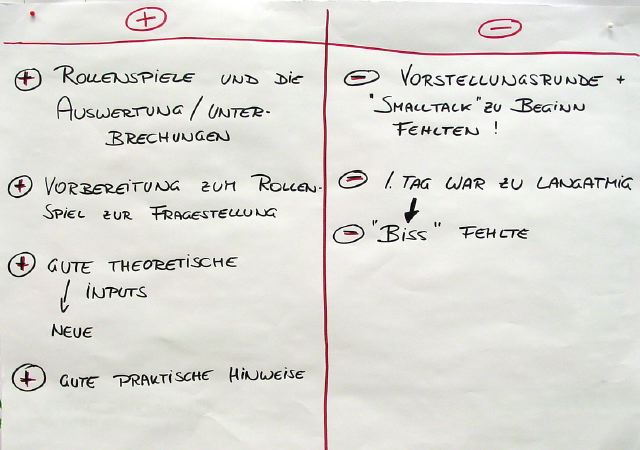 +
+ ROLLENSPIELE UND DIE
AUSWERTUNG / UNTER-
BRECHUNGEN
+ VORBEREITUNG ZUM ROLLEN-
SPIEL ZUR FRAGESTELLUNG
+ GUTE THEORETISCHE
↓ INPUTS
NEUE
+ GUTE PRAKTISCHE HINWEISE
-
- VORSTELLUNGSRUNDE +
"SMALLTALK" ZU BEGINN
FEHLTEN !
- 1. TAG WAR ZU LANGATMIG
↓
- "BISS" FEHLTE